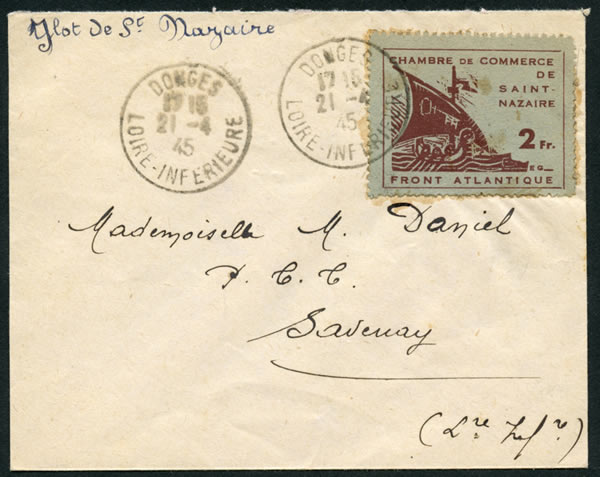 Ilot de St Nazaire
DONGES
17 15
21 -4
45
LOIRE-INFERIEURE
DONGES
17 15
21 -4
45
LOIRE-INFERIEURE
CHAMBRE DE COMMERCE
DE
SAINT-
NAZAIRE
2 Fr.
EG
FRONT ATLANTIQUE
Mademoiselle M. Daniel
P. T. T.
Savenay
(Lre Infre)